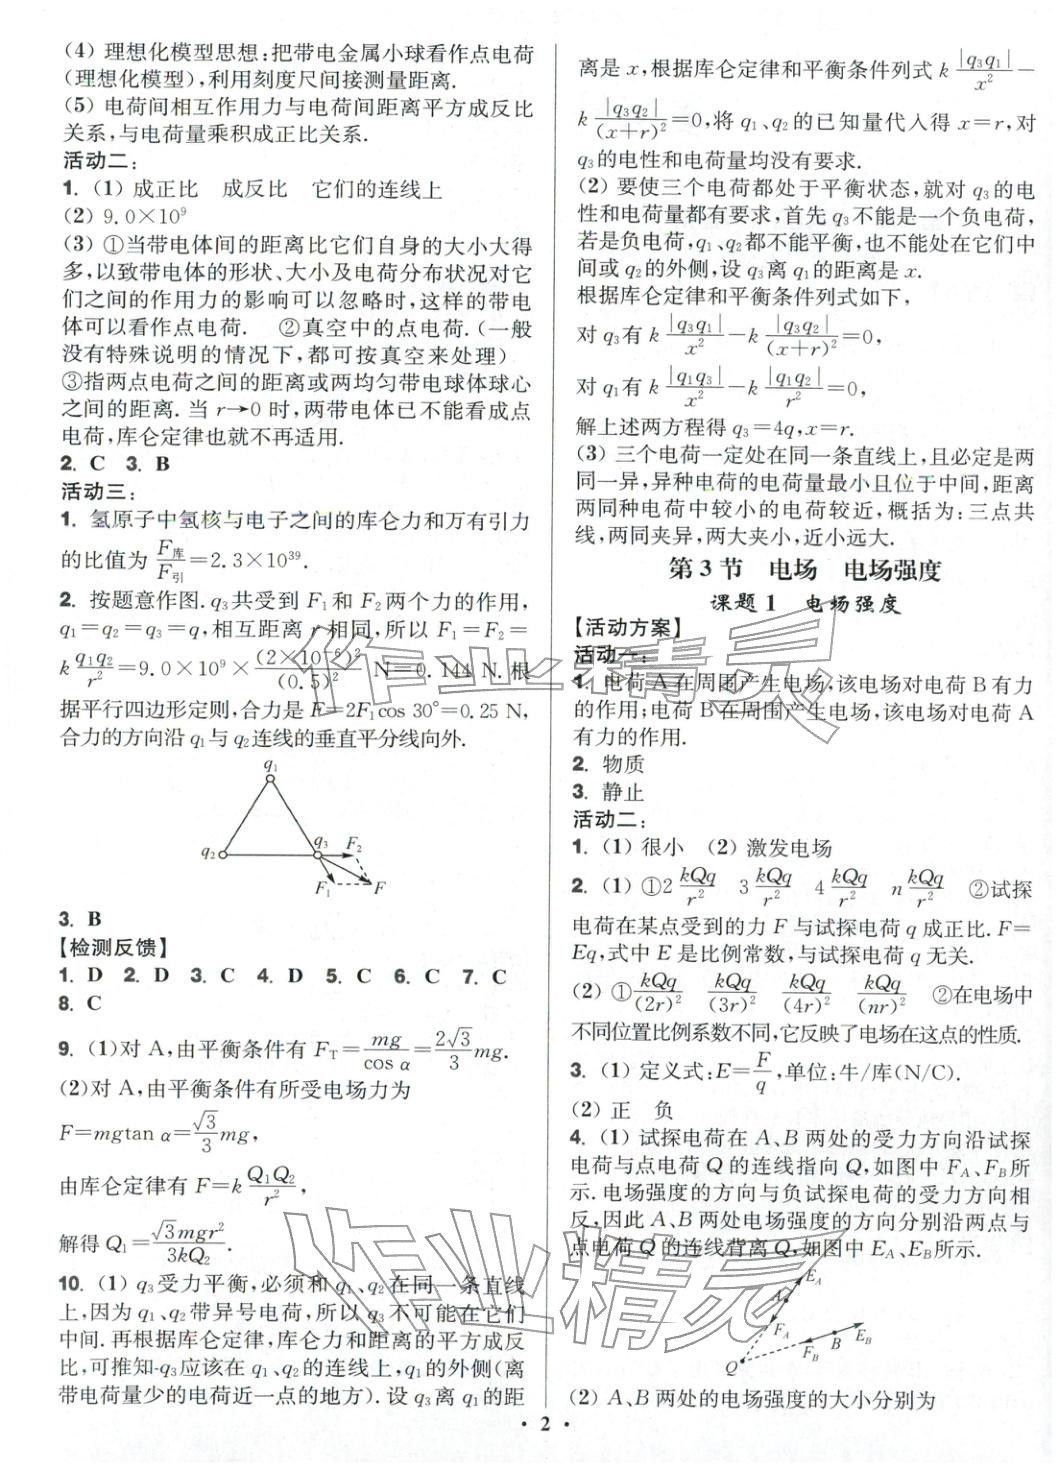 (4) 理想化模型思想:把带电金属小球看作点电荷
(理想化模型),利用刻度尺间接测量距离.
(5) 电荷间相互作用力与电荷间距离平方成反比
关系,与电荷量乘积成正比关系.
活动二:
1. (1) 成正比　成反比　它们的连线上
(2) 9.0×10⁹
(3) ①当带电体间的距离比它们自身的大小大得
多,以致带电体的形状、大小及电荷分布状况对它
们之间的作用力的影响可以忽略时,这样的带电
体可以看作点电荷.　②真空中的点电荷.(一般
没有特殊说明的情况下,都可按真空来处理)
③指两点电荷之间的距离或两均匀带电球体球心
之间的距离. 当 r→0 时,两带电体已不能看成点
电荷,库仑定律也就不再适用.
2. C　3. B
活动三:
1. 氢原子中氢核与电子之间的库仑力和万有引力
的比值为 F库/F引=2.3×10³⁹.
2. 按题意作图. q₃共受到 F₁和 F₂两个力的作用,
q₁=q₂=q₃=q,相互距离 r 相同,所以 F₁=F₂=
k q₁q₂/r²=9.0×10⁹×(2×10⁻⁶)²/(0.5)² N=0.144 N. 根
据平行四边形定则,合力是 F=2F₁cos 30°=0.25 N,
合力的方向沿 q₁与 q₂连线的垂直平分线向外.
q₁
q₂
q₃
F₂
F₁
F
3. B
【检测反馈】
1. D　2. D　3. C　4. D　5. C　6. C　7. C
8. C
9. (1)对 A,由平衡条件有 F_T=mg/cos α=2√3/3 mg.
(2)对 A,由平衡条件有所受电场力为
F=mgtan α=√3/3 mg,
由库仑定律有 F=k Q₁Q₂/r²,
解得 Q₁=√3mgr²/3kQ₂.
10. (1) q₃受力平衡,必须和 q₁、q₂在同一条直线
上,因为 q₁、q₂带异号电荷,所以 q₃不可能在它们
中间. 再根据库仑定律,库仑力和距离的平方成反
比,可推知 q₃应该在 q₁、q₂的连线上,q₁的外侧(离
带电荷量少的电荷近一点的地方). 设 q₃离 q₁的距
离是 x,根据库仑定律和平衡条件列式 k |q₃q₁|/x²−
k |q₃q₂|/(x+r)²=0,将 q₁、q₂的已知量代入得 x=r,对
q₃的电性和电荷量均没有要求.
(2) 要使三个电荷都处于平衡状态,就对 q₃的电
性和电荷量都有要求,首先 q₃不能是一个负电荷,
若是负电荷,q₁、q₂都不能平衡,也不能处在它们中
间或 q₂的外侧,设 q₃离 q₁的距离是 x.
根据库仑定律和平衡条件列式如下,
对 q₃有 k |q₃q₁|/x²−k |q₃q₂|/(x+r)²=0,
对 q₁有 k |q₁q₃|/x²−k |q₁q₂|/r²=0,
解上述两方程得 q₃=4q,x=r.
(3) 三个电荷一定处在同一条直线上,且必定是两
同一异,异种电荷的电荷量最小且位于中间,距离
两同种电荷中较小的电荷较近,概括为:三点共
线,两同夹异,两大夹小,近小远大.
第 3 节　电场　电场强度
课题 1　电场强度
【活动方案】
活动一:
1. 电荷 A 在周围产生电场,该电场对电荷 B 有力
的作用;电荷 B 在周围产生电场,该电场对电荷 A
有力的作用.
2. 物质
3. 静止
活动二:
1. (1) 很小　(2) 激发电场
2. (1) ①2 kQq/r²　3 kQq/r²　4 kQq/r²　n kQq/r²　②试探
电荷在某点受到的力 F 与试探电荷 q 成正比. F=
Eq,式中 E 是比例常数,与试探电荷 q 无关.
(2) ①kQq/(2r)²　kQq/(3r)²　kQq/(4r)²　kQq/(nr)²　②在电场中
不同位置比例系数不同,它反映了电场在这点的性质.
3. (1) 定义式:E=F/q,单位:牛/库(N/C).
(2) 正　负
4. (1) 试探电荷在 A、B 两处的受力方向沿试探
电荷与点电荷 Q 的连线指向 Q,如图中 F_A、F_B所
示. 电场强度的方向与负试探电荷的受力方向相
反,因此 A、B 两处电场强度的方向分别沿两点与
点电荷 Q 的连线背离 Q,如图中 E_A、E_B所示.
E_A
A
F_A
E_B
B
F_B
Q
(2) A、B 两处的电场强度的大小分别为
• 2 •
作业精灵
作业精灵